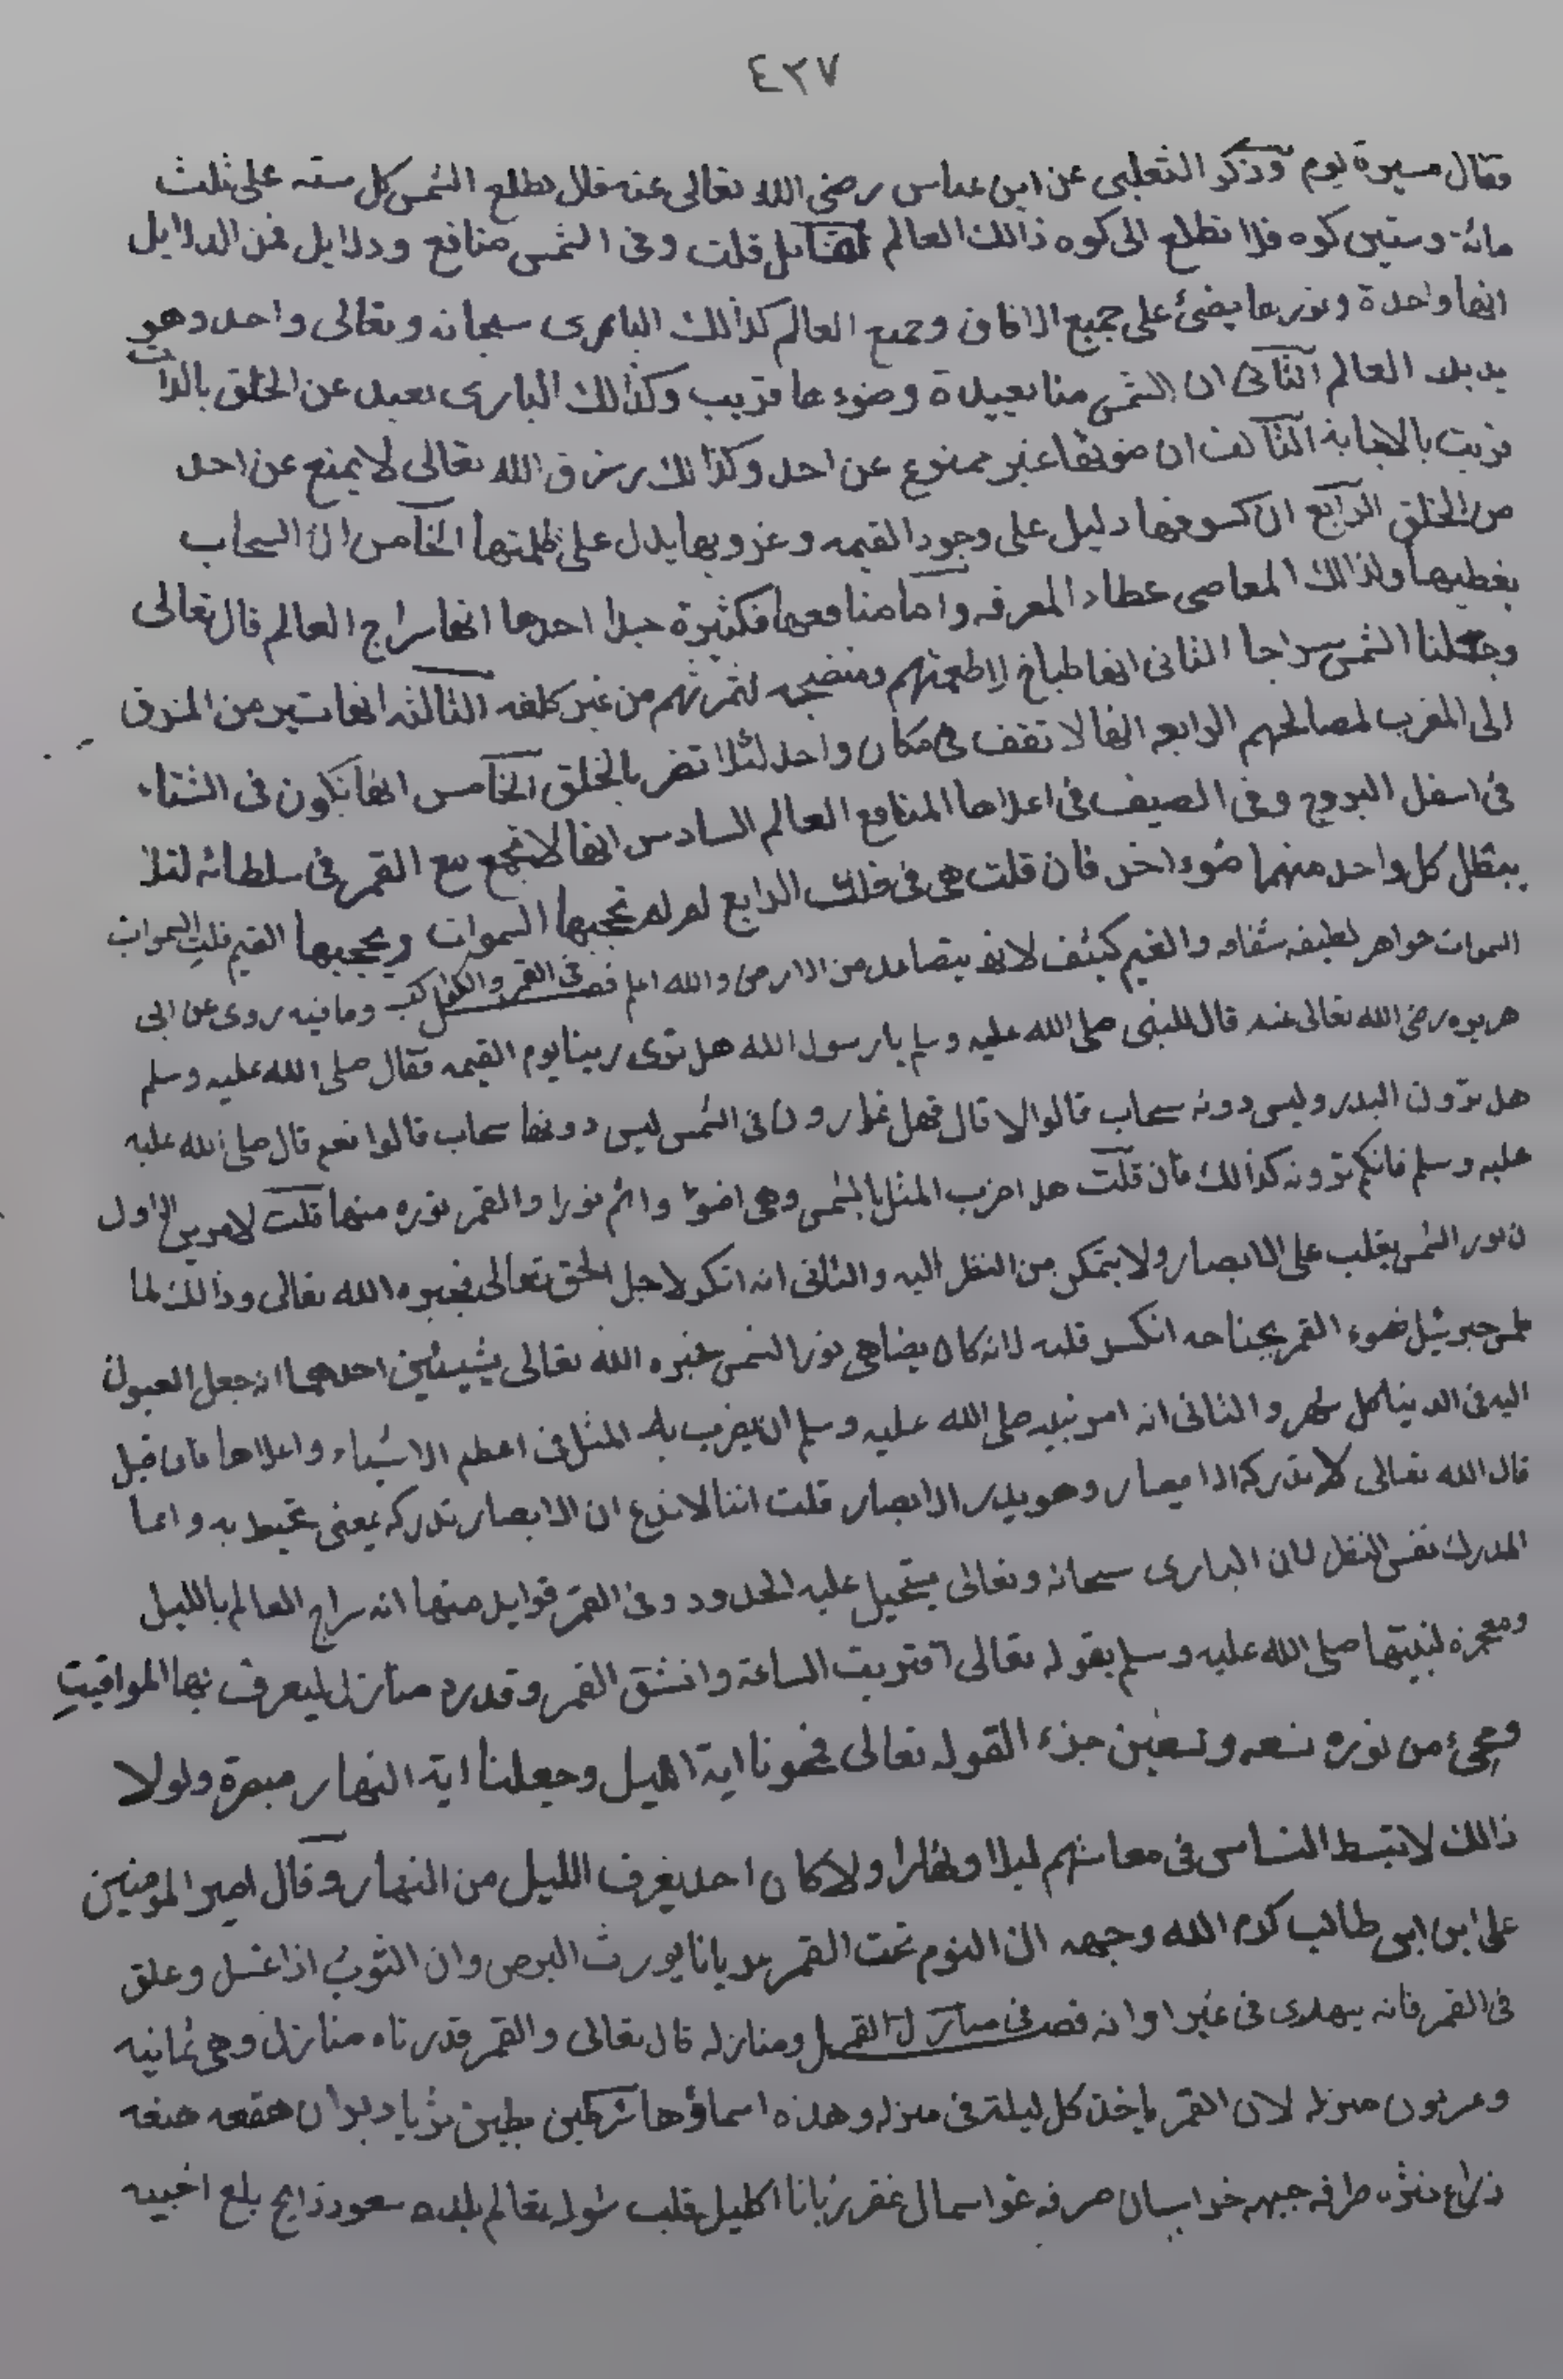 ٤٢٧
فقال مسيرة يوم وذكر الثعلبي عن ابن عباس رضي الله تعالى عنه قال تطلع الشمس كل سنه على ثلث
مائة وستين كوه فلا تطلع الى كوه ذالك العالم قلت وفى الشمس منافع ودلايل فمن الدلايل
انها واحدة ونورها يضئ على جميع الافاق وجميع العالم كذالك البارى سبحانه وتعالى واحد وهو
يدبر العالم الثانى ان الشمس منا بعيدة وضوءها قريب وكذالك البارى بعيد عن الخلق بالذات
قريب بالاجابة الثالث ان ضوئها غير ممنوع عن احد وكذالك رزق الله تعالى لا يمنع عن احد
من الخلق الرابع ان كسوفها دليل على وجود القيمه وغروبها يدل على ظلمتها الخامس ان السحاب
يغطيها وكذالك المعاصى غطاء المعرفه واما منافعها فكثيرة جدا احدها انها سراج العالم قال تعالى
وجعلنا الشمس سراجا الثانى انها طباخ لاطعمتهم ومنضجه لثمرتهم من غير كلفه الثالثه انها تسير من المشرق
الى المغرب لمصالحهم الرابعه انها لا تقف فى مكان واحد لئلا تضر بالخلق الخامس انها تكون فى الشتاء
فى اسفل البروج وفى الصيف فى اعلاها المنافع العالم السادس انها لا تجمع مع القمر فى سلطانه لئلا
يبطل كل واحد منهما ضوء اخر فان قلت هى فى فلك الرابع لم لم تحجبها السموات ويحجبها الغيم قلت السموات
السموات جواهر لطيفه شفافه والغيم كثيف لانه يتصاعد من الارض والله اعلم فصل فى القمر والكواكب وما فيه روى عن ابى
هريره رضي الله تعالى عنه قال للنبى صلى الله عليه وسلم يا رسول الله هل نرى ربنا يوم القيمه فقال صلى الله عليه وسلم
هل ترون البدر وليس دونه سحاب قالوا لا قال فهل تمارون فى الشمس ليس دونها سحاب قالوا نعم قال صلى الله عليه
عليه وسلم فانكم ترونه كذالك فان قلت هل اضرب المثل بالشمس وهى اضوأ واتم نورا والقمر نوره منها قلت لامرين الاول
ان نور الشمس يغلب على الابصار ولا يتمكن من النظر اليه والثانى انه انكر لاجل الحق تعالى فجبره الله تعالى وذالك لما
طمس جبرئيل ضوء القمر بجناحه انكسر قلبه لانه كان يضاهى نور الشمس فجبره الله تعالى بشيئين احدهما انه جعل العيون
اليه فى الدنيا كل شهر والثانى انه امر نبيه صلى الله عليه وسلم ان يضرب به المثل فى اعظم الاشياء واعلاها فان قيل
قال الله تعالى لا تدركه الابصار وهو يدرك الابصار قلت اننا لا ندع ان الابصار تدركه بمعنى تحيط به وانما
المدرك نفس النظر لان البارى سبحانه وتعالى يستحيل عليه الحدود وفى القمر فوايد منها انه سراج العالم بالليل
ومعجزه لنبيها صلى الله عليه وسلم بقوله تعالى اقتربت الساعة وانشق القمر وقدره منازل ليعرف بها المواقيت
ومحئ من نوره تسعه وتسعين جزء القوله تعالى فمحونا اية الليل وجعلنا اية النهار مبصرة ولولا
ذالك لانبسط الناس فى معاشهم ليلا ونهارا ولا كان احد يعرف الليل من النهار وقال امير المومنين
على ابن ابى طالب كرم الله وجهه ان النوم تحت القمر عريانا يورث البرص وان الثوب اذا غسل وعلق
فى القمر فانه يبهدى فى غير اوانه فصل فى منازل القمر ومنازله قال تعالى والقمر قدرناه منازل وهى ثمانيه
وعشرون منزله لان القمر ياخذ كل ليلة فى منزله وهذه اسماؤها شرطين بطين ثريا دبران هقعه هنعه
ذراع نثره طرفه جبهه خراسان صرفه عوا سمال غفر زبانا اكليل قلب شوله نعالم بلده سعود ذابح بلع اخبيه